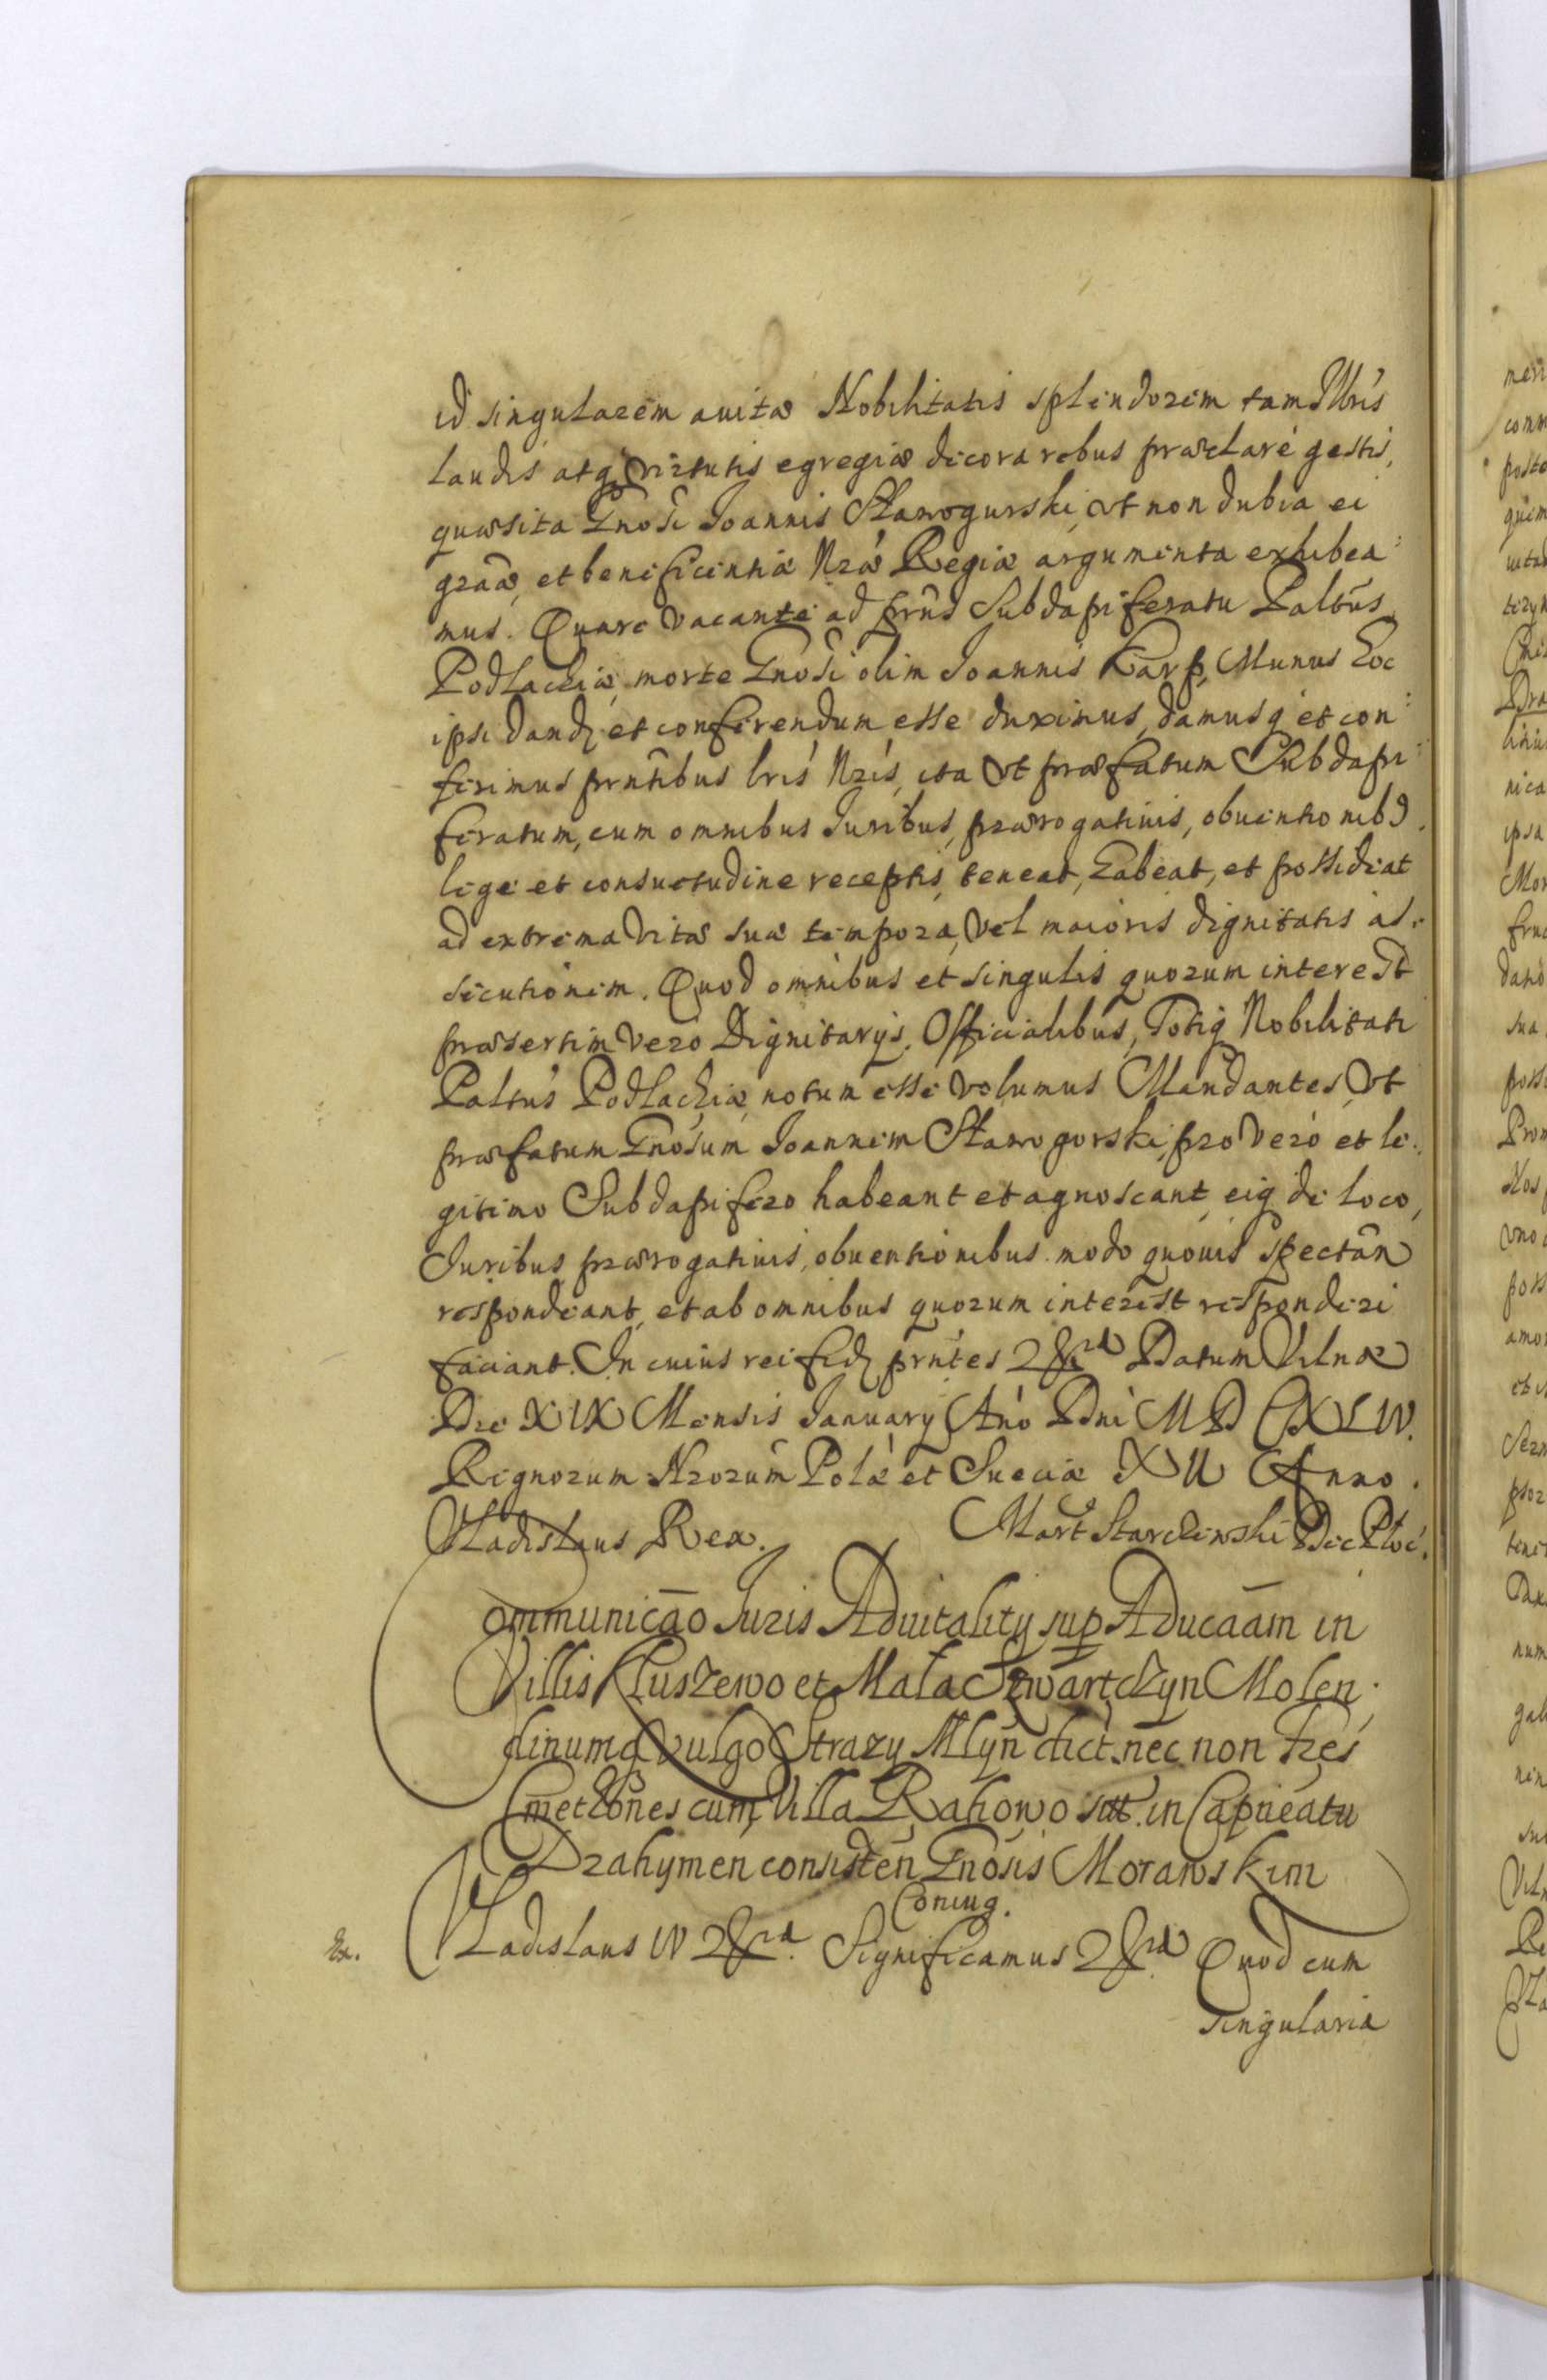 id singularem auitæ Nobilitatis splendorem tam Illris
laudis atq̨ virtutis egregiæ decora rebus præclaré gestis,
quæsita Gnosi Joannis Stawogurski, vt non dubia ei
graæ, et beneficentiæ Nræ Regiæ argumenta exhibea:
mus. Quare vacante ad prns Subdapiferatu Paltus
Podlachiæ, morte Gnosi olim Joannis Karp, Munus hoc
ipsi dandȝ et conferendum esse duximus, damusq̨ et con:
ferimus prntibus lris Nris, ita vt præfatum Subdapi:
feratum, cum omnibus Juribus, prærogatiuis, obuentionib9
lege et consuetudine receptis, teneat, habeat, et possideat
ad extrema vitæ suæ tempora, vel maioris dignitatis as:
secutionem. Quod omnibus et singulis quorum interest
præsertim vero Dignitarijs, Officialibus, Totiq̨ Nobilitati
Paltus Podlachiæ, notum esse volumus Mandantes, vt
præfatum Gnosum Joannem Stawogorski, pro vero et le:
gitimo Subdapifero habeant et agnoscant, eiq̨ de loco,
Juribus prærogatiuis, obuentionibus modo quouis spectan
respondeant, et ab omnibus quorum interest responderi
faciant. In cuius rei fidȝ prntes &ra Datum Vilnæ
Die XIX Mensis January Ano Dni MDCXLIV.
Regnorum Nrorum Polæ et Sueciæ XII Anno.
Vladislaus Rex. Mart Starczewski Dec Ploc.
Communicao Juris Aduitality sup Aducaam in
Villis Kluszewo et Mała Szwartczyn Molen:
dinumq̨ vulgo Strazy Młyn dict. nec non Tres
Cmethones cum Villa Rahowo sitt. in Capneatu
Drahymen consisten Gnosis Morawskim
Coniug.
Ex. Vladislaus IV &ra. Significamus &ra Quod cum
singularia